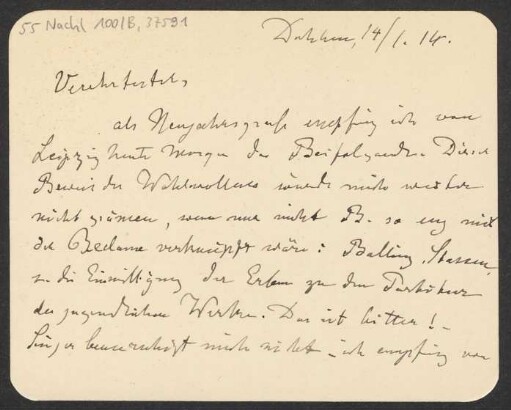 55 Nachl 100/B, 37591
14/1. 14.
Verehrtester,
als Neujahrsgruß empfing ich von
Leipzig heute Morgen das Beifolgende. Dieser
Beweis des Wohlwollens würde mich weiter
nicht grämen, wenn nur nicht B. so eng mit
der Reclame verknüpft wäre: Balling, Stassen,
die Einwilligung der Erben zu den
der jugendlichen Werke. Das ist bitter! -
mich nicht - ich empfing von